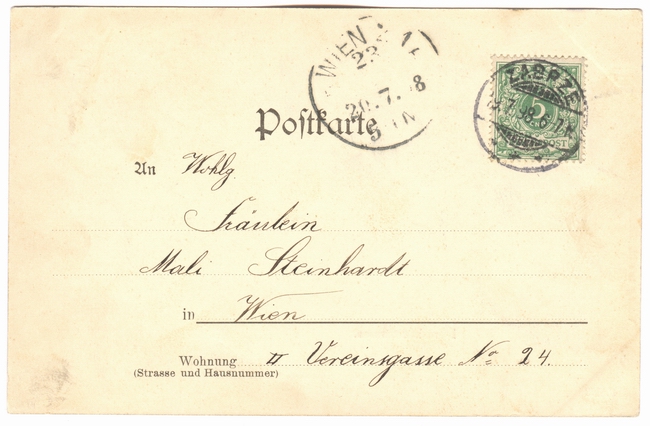 WIEN
20. 7. 8
5 N
ZABRZE
5
Postkarte
An Wohlg.
Fräulein
Mali Steinhardt
in Wien
Wohnung II Vereinsgasse No 24.
(Strasse und Hausnummer)